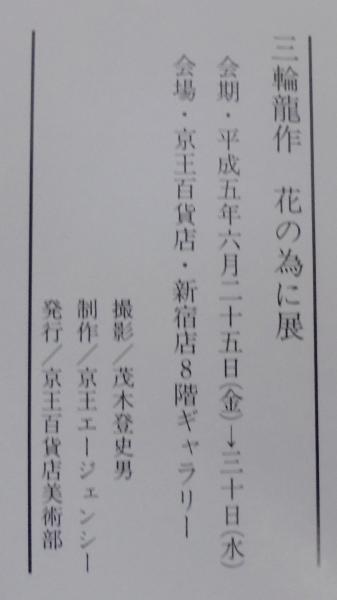 三輪龍作　花の為に展
会期・平成五年六月二十五日(金)→三十日(水)
会場・京王百貨店・新宿店8階ギャラリー
撮影／茂木登史男
制作／京王エージェンシー
発行／京王百貨店美術部